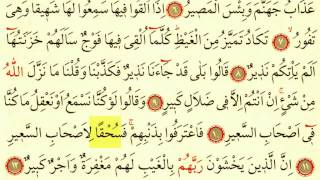 عَذَابُ جَهَنَّمَ وَبِئْسَ الْمَصِيرُ ﴿٦﴾ اِذَٓا اُلْقُوا فِيهَا سَمِعُوا لَهَا شَهِيقًا وَهِيَ
تَفُورُ ﴿٧﴾ تَكَادُ تَمَيَّزُ مِنَ الْغَيْظِ كُلَّمَٓا اُلْقِيَ فِيهَا فَوْجٌ سَاَلَهُمْ خَزَنَتُهَٓا
اَلَمْ يَاْتِكُمْ نَذِيرٌ ﴿٨﴾ قَالُوا بَلٰى قَدْ جَٓاءَنَا نَذِيرٌ فَكَذَّبْنَا وَقُلْنَا مَا نَزَّلَ اللّٰهُ
مِنْ شَيْءٍ اِنْ اَنْتُمْ اِلَّا فِي ضَلَالٍ كَبِيرٍ ﴿٩﴾ وَقَالُوا لَوْ كُنَّا نَسْمَعُ اَوْ نَعْقِلُ مَا كُنَّا
فِٓي اَصْحَابِ السَّعِيرِ ﴿١٠﴾ فَاعْتَرَفُوا بِذَنْبِهِمْ فَسُحْقًا لِاَصْحَابِ السَّعِيرِ
﴿١١﴾ اِنَّ الَّذِينَ يَخْشَوْنَ رَبَّهُمْ بِالْغَيْبِ لَهُمْ مَغْفِرَةٌ وَاَجْرٌ كَبِيرٌ ﴿١٢﴾